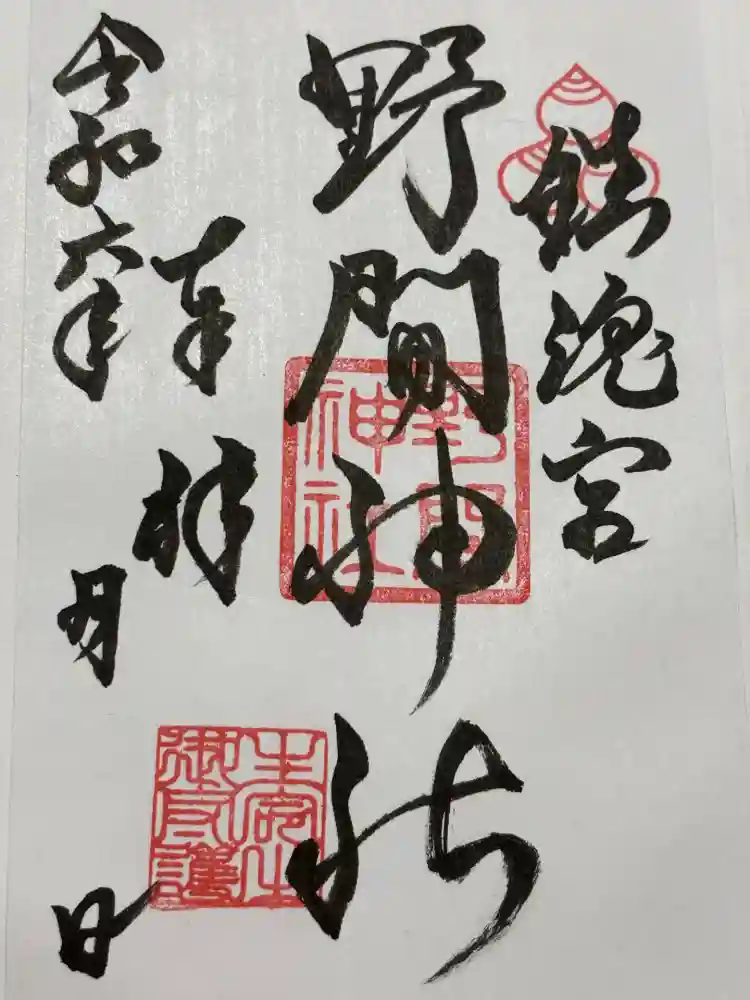 鎮魂宮
野間神社
野間神社
奉拝
令和六年 月 日